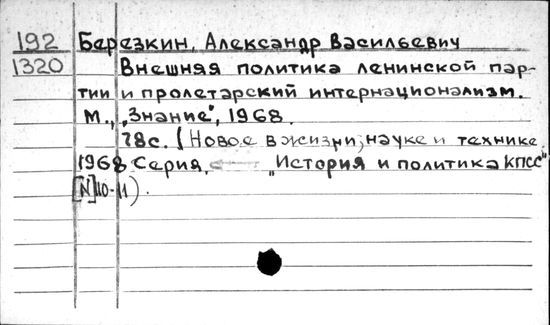 192 Березкин, Александр Васильевич
1320 Внешняя политика ленинской пар-
тии и пролетарский интернационализм.
М., „Знание", 1968.
78с. (Новое в жизни, науке и технике.
1968 Серия, „История и политика КПСС"
[N] 10-11).